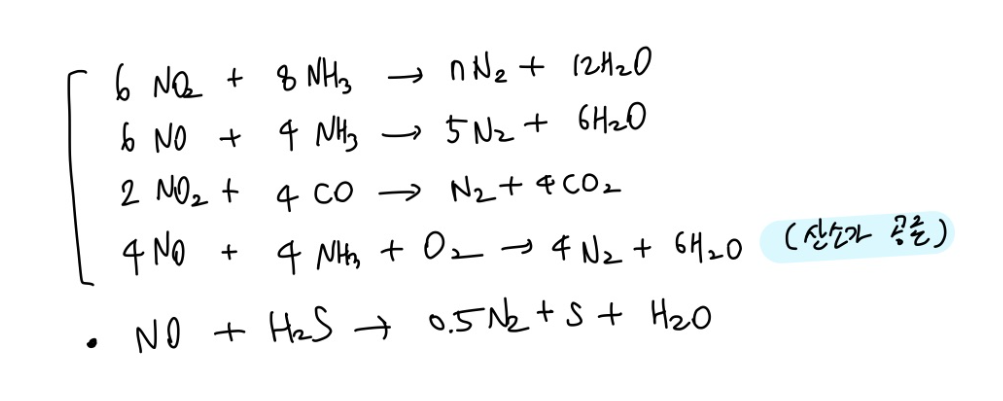 6 NO₂ + 8 NH₃ → n N₂ + 12H₂O
6 NO + 4 NH₃ → 5 N₂ + 6H₂O
2 NO₂ + 4 CO → N₂ + 4 CO₂
4 NO + 4 NH₃ + O₂ → 4 N₂ + 6H₂O (산소가 공존)
• NO + H₂S → 0.5 N₂ + S + H₂O